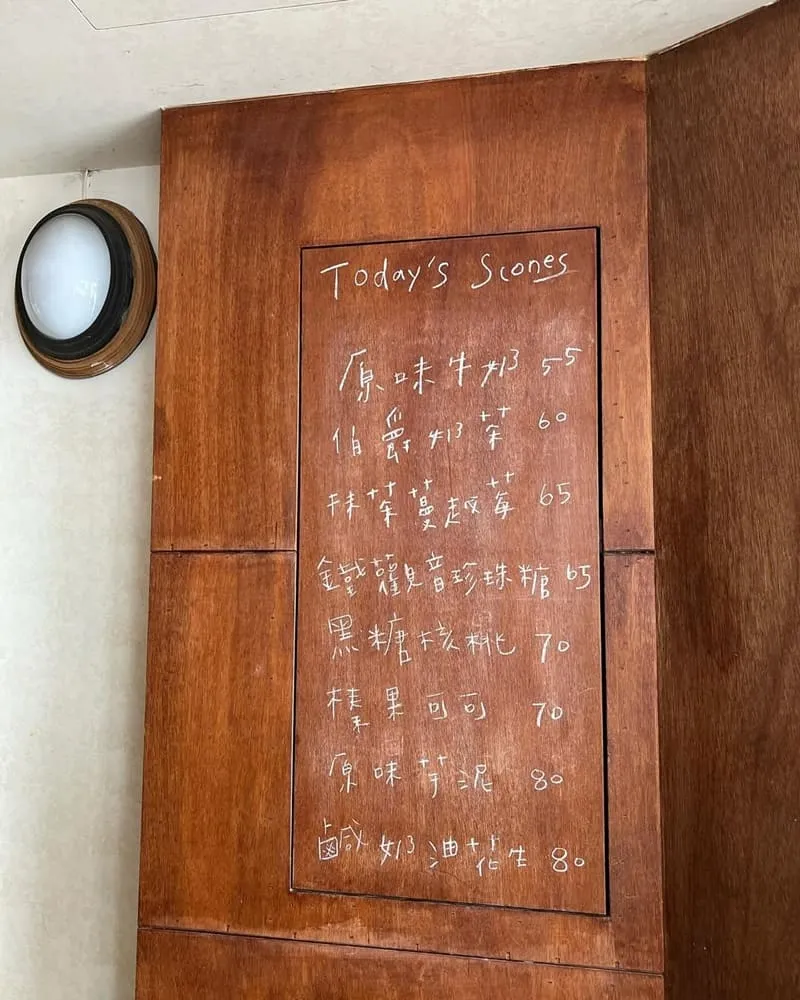 Today's Scones
原味牛奶 55
伯爵奶茶 60
抹茶蔓越莓 65
鐵觀音珍珠糖 65
黑糖核桃 70
榛果可可 70
原味芋泥 80
鹹奶油花生 80